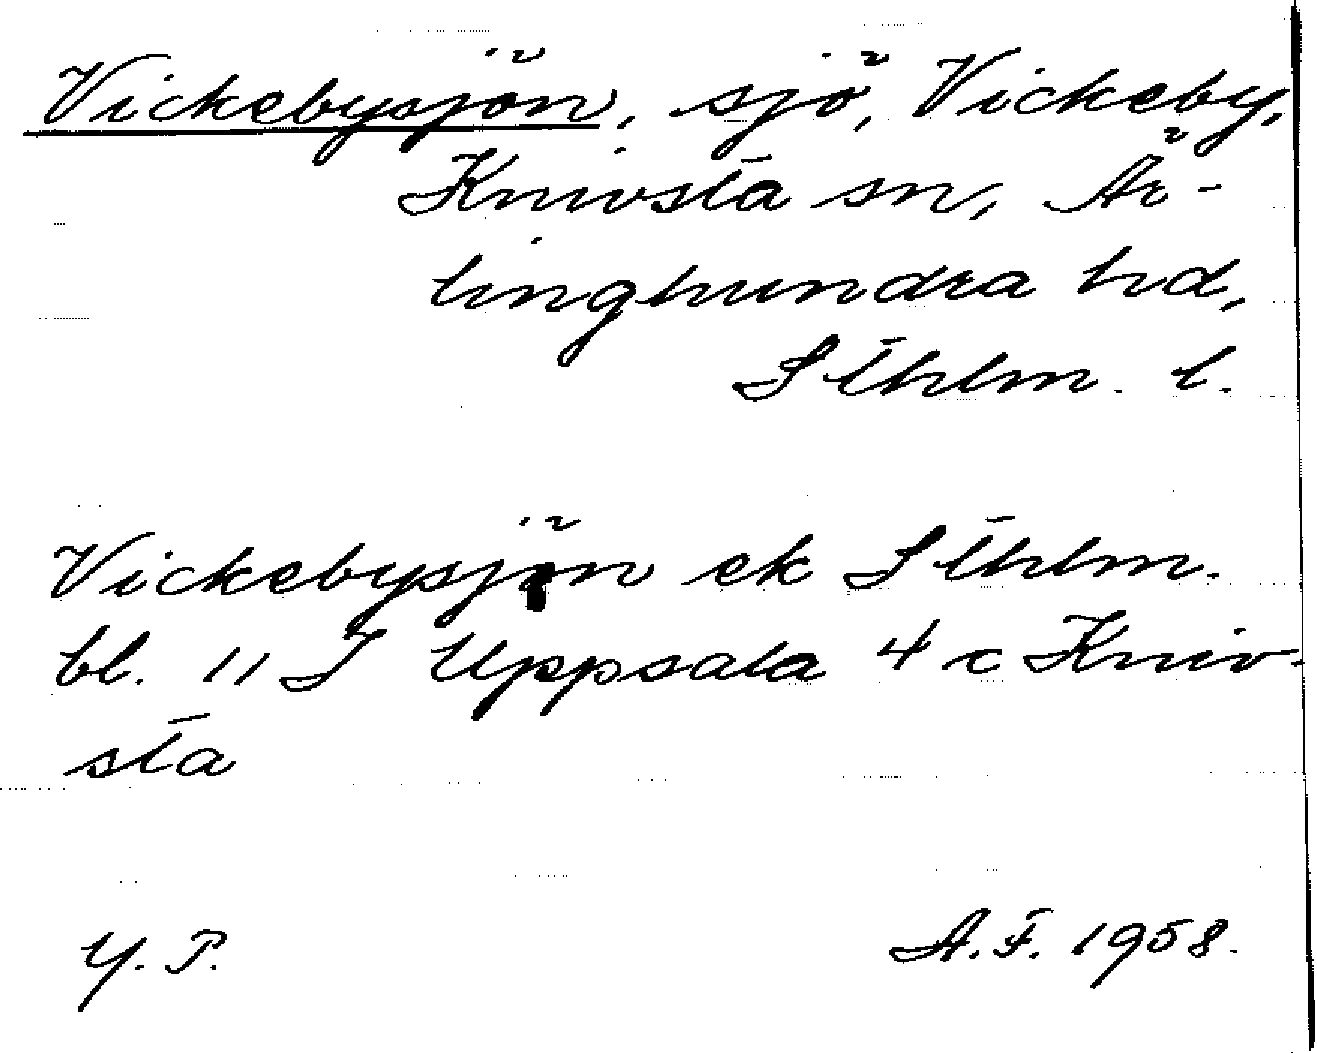 Vickebysjön, sjö, Vickeby,
Knivsta sn, Är-
linghundra hd,
Sthlm. l.
Vickebysjön ek Sthlm.
bl. 11 I Uppsala 4 c Kniv-
sta
Y. P.
A.F. 1958.